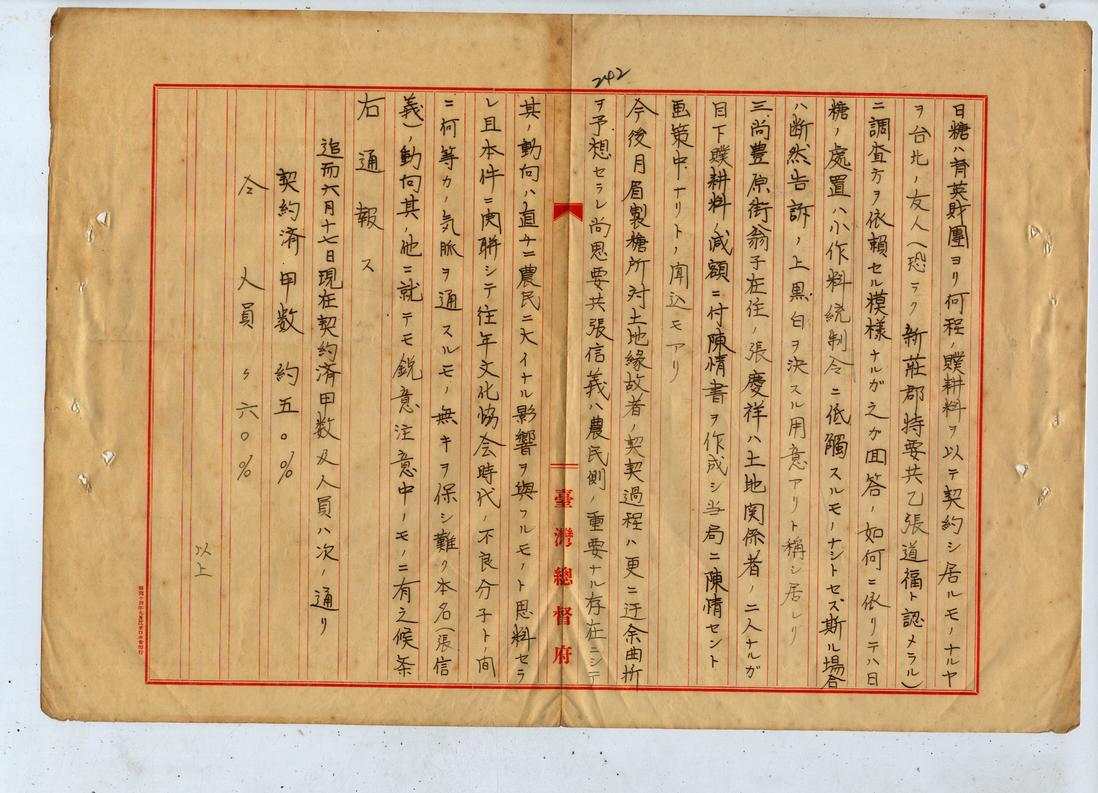 242
日糖ハ育英財團ヨリ何程ノ贌耕料ヲ以テ契約シ居ルモノナルヤ
ヲ台北ノ友人(恐ラク新莊郡特要共乙張道福ト認メラル)
ニ調査方ヲ依賴セル模樣ナルガ之カ回答ノ如何ニ依リテハ日
糖ノ處置ハ小作料統制令ニ低觸スルモノナシトセズ斯ル場合
ハ断然告訴ノ上黒白ヲ決スル用意アリト稱シ居レリ
三、尚豊原街翁子在住ノ張慶祥ハ土地関係者ノ一人ナルガ
目下贌耕料ノ減額ニ付陳情書ヲ作成シ当局ニ陳情セント
画策中ナリトノ聞込モアリ
今後月眉製糖所対土地縁故者ノ契契過程ハ更ニ迂余曲折
ヲ予想セラレ尚思要共張信義ハ農民側ノ重要ナル存在ニシテ
其ノ動向ハ直チニ農民ニ大イナル影響ヲ與フルモノト思料セラ
レ且本件ニ関聯シテ往年文化協会時代ノ不良分子トノ間
ニ何等カノ気脈ヲ通スルモノ無キヲ保シ難ク本名(張信
義)ノ動向其ノ他ニ就テモ鋭意注意中ノモノニ有之候条
右通報ス
追而六月十七日現在契約済甲数及人員ハ次ノ通リ
契約済甲数 約五〇%
仝 人員 〃六〇%
以上
臺灣總督府